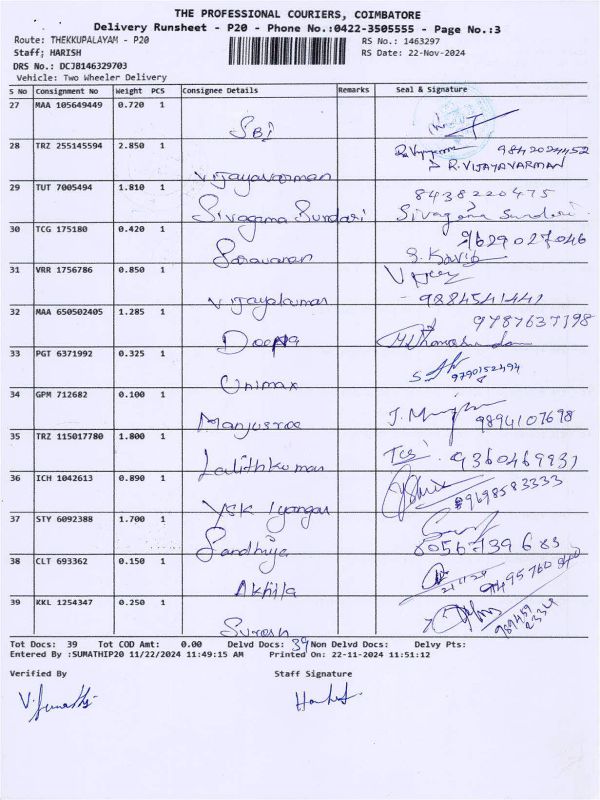 THE PROFESSIONAL COURIERS, COIMBATORE
Delivery Runsheet - P20 - Phone No.:0422-3505555 - Page No.:3
Route: THEKKUPALAYAM - P20 RS No.: 1463297
Staff; HARISH RS Date: 22-Nov-2024
DRS No.: DCJB146329703
Vehicle: Two Wheeler Delivery
S No Consignment No Weight PCS Consignee Details Remarks Seal & Signature
27 MAA 105649449 0.720 1
SBI
28 TRZ 255145594 2.850 1 9842024452
R.VIJAYAVARMAN
Vijayavarman
29 TUT 7005494 1.810 1 8438220475
Sivagama Sundari Sivagama Sundari
30 TCG 175180 0.420 1 9629027046
Saravanan S. Kavib
31 VRR 1756786 0.850 1
Vijayakumar 9884541441
32 MAA 650502405 1.285 1 9787637198
Deepa
33 PGT 6371992 0.325 1
9790152494
Unimax
34 GPM 712682 0.100 1
Manjusree 9894107698
35 TRZ 115017780 1.800 1
Lalithkumar 9360469931
36 ICH 1042613 0.890 1
9698583333
YSK Iyangar
37 STY 6092388 1.700 1
Sandhiya 8056739683
38 CLT 693362 0.150 1
Akhila
39 KKL 1254347 0.250 1
Suresh
Tot Docs: 39 Tot COD Amt: 0.00 Delvd Docs: 39 Non Delvd Docs: Delvy Pts:
Entered By :SUMATHIP20 11/22/2024 11:49:15 AM Printed On: 22-11-2024 11:51:12
Verified By Staff Signature
V. Sumathi